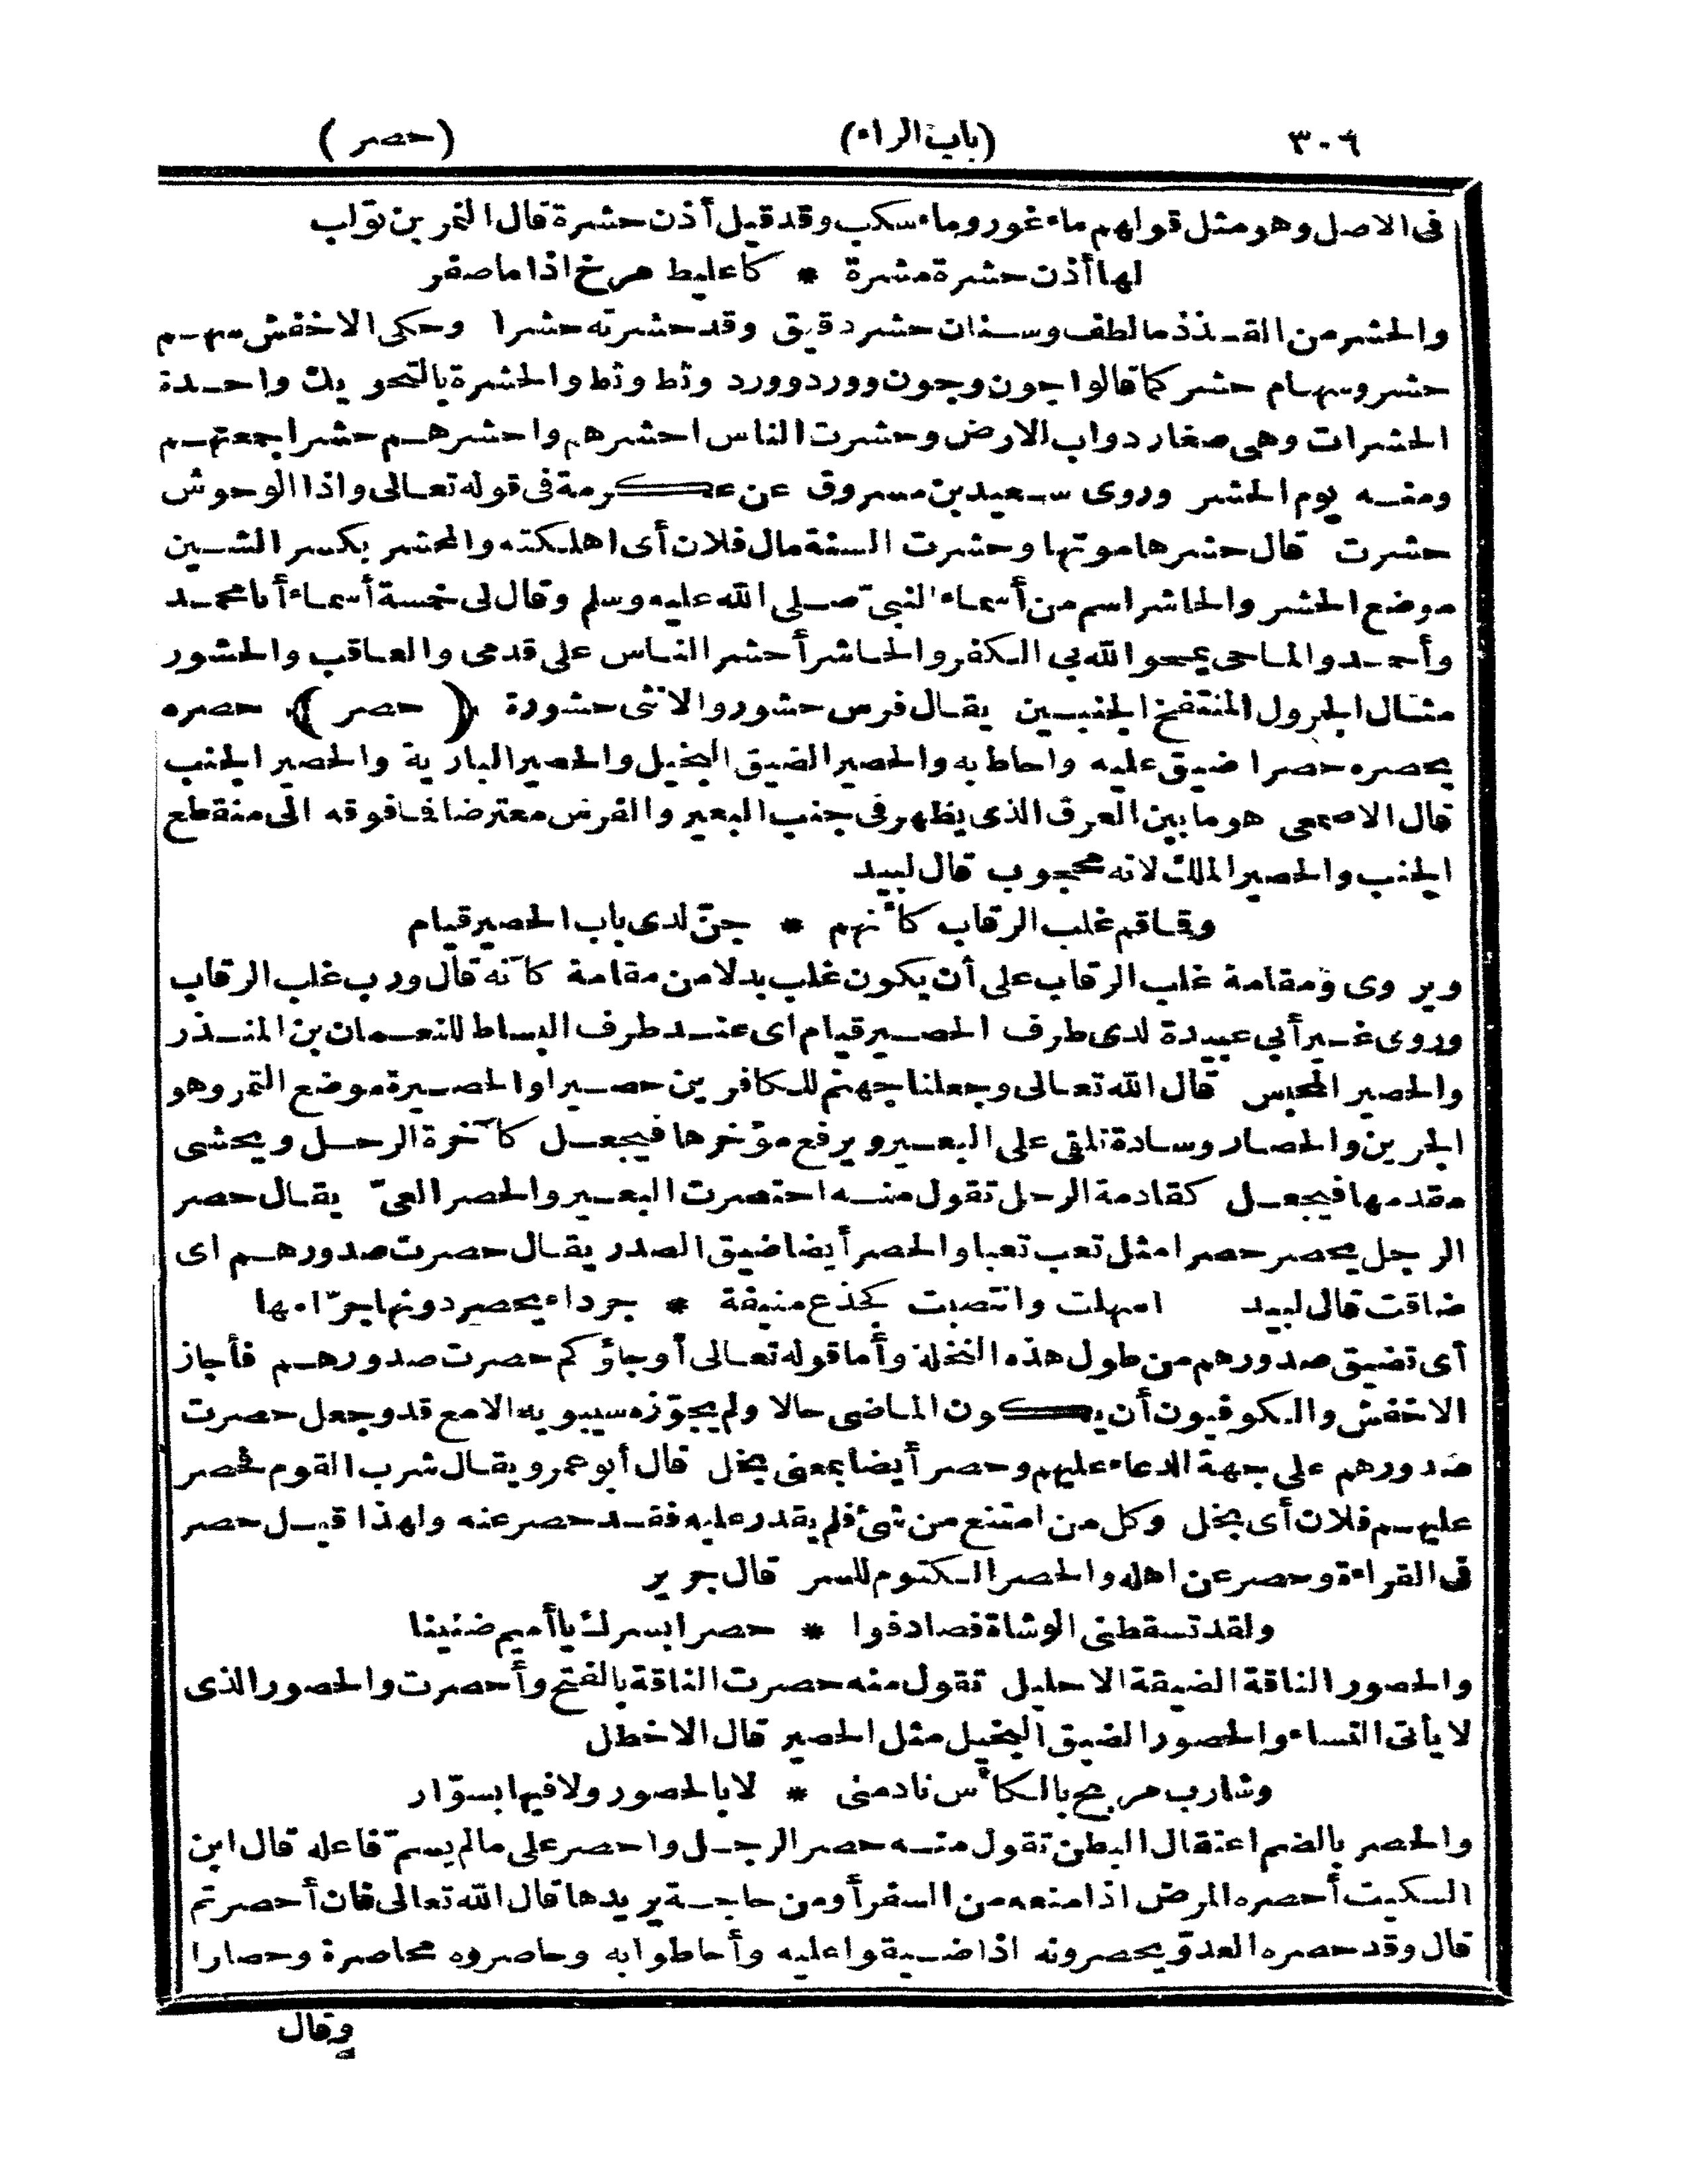 ٣٠٦ (باب الراء) (حصر)
فى الاصل وهو مثل قولهم ماء غور وماء سكب وقد قيل أذن حشرة قال النمر بن تولب
لها أذن حشرة مشرة * كاعليط مرخ اذا ما صفر
والحشر من القذذ ما لطف وسنان حشر دقيق وقد حشرته حشرا وحكى الاخفش سهم
حشر وسهام حشر كما قالوا جون وجون وورد وورد وثط وثط والحشرة بالتحريك واحدة
الحشرات وهى صغار دواب الارض وحشرت الناس احشرهم واحشرهم حشرا جمعتهم
ومنه يوم الحشر وروى سعيد بن مسروق عن عكرمة فى قوله تعالى واذا الوحوش
حشرت قال حشرها موتها وحشرت السنة مال فلان أى اهلكته والمحشر بكسر الشين
موضع الحشر والحاشر اسم من أسماء النبىّ صلى الله عليه وسلم وقال لى خمسة أسماء أنا محمد
وأحمد والماحى يمحو الله بى الكفر والحاشر أحشر الناس على قدمى والعاقب والحشور
مثال الجرول المنتفخ الجنبين يقال فرس حشور والانثى حشورة ﴿ حصر ﴾ حصره
يحصره حصرا ضيق عليه واحاط به والحصير الضيق البخيل والحصير البارية والحصير الجنب
قال الاصمعى هو ما بين العرق الذى يظهر فى جنب البعير والفرس معترضا فما فوقه الى منقطع
الجنب والحصير الملك لانه محجوب قال لبيد
وقماقم غلب الرقاب كأنهم * جنّ لدى باب الحصير قيام
ويروى ومقامة غلب الرقاب على أن يكون غلب بدلا من مقامة كأنه قال ورب غلب الرقاب
وروى غير أبى عبيدة لدى طرف الحصير قيام اى عند طرف البساط للنعمان بن المنذر
والحصير المحبس قال الله تعالى وجعلنا جهنم للكافرين حصيرا والحصيرة موضع التمر وهو
الجرين والحصار وسادة تلقى على البعير ويرفع مؤخرها فيجعل كآخرة الرحل ويحشى
مقدمها فيجعل كقادمة الرحل تقول منه احتصرت البعير والحصر العىّ يقال حصر
الرجل يحصر حصرا مثل تعب تعبا والحصر أيضا ضيق الصدر يقال حصرت صدورهم اى
ضاقت قال لبيد اسهلت وانتصبت كجذع منيفة * جرداء يحصر دونها جرّامها
أى تضيق صدورهم من طول هذه النخلة وأما قوله تعالى أو جاؤكم حصرت صدورهم فأجاز
الاخفش والكوفيون أن يكون الماضى حالا ولم يجوّزه سيبويه الا مع قد وجعل حصرت
صدورهم على جهة الدعاء عليهم وحصر أيضا بمعنى بخل قال أبو عمرو يقال شرب القوم فحصر
عليهم فلان أى بخل وكل من امتنع من شئ فلم يقدر عليه فقد حصر عنه ولهذا قيل حصر
فى القراءة وحصر عن اهله والحصر الكتوم للسر قال جرير
ولقد تسقطنى الوشاة فصادفوا * حصرا بسرك يا أميم ضنينا
والحصور الناقة الضيقة الاحليل تقول منه حصرت الناقة بالفتح وأحصرت والحصور الذى
لا يأتى النساء والحصور الضيق البخيل مثل الحصير قال الاخطل
وشارب مربح بالكأس نادمنى * لا بالحصور ولا فيها بسوّار
والحصر بالضم اعتقال البطن تقول منه حصر الرجل واحصر على ما لم يسمّ فاعله قال ابن
السكيت أحصره المرض اذا منعه من السفر أو من حاجة يريدها قال الله تعالى فان أحصرتم
قال وقد حصره العدوّ يحصرونه اذا ضيقوا عليه وأحاطوا به وحاصروه محاصرة وحصارا
وقال